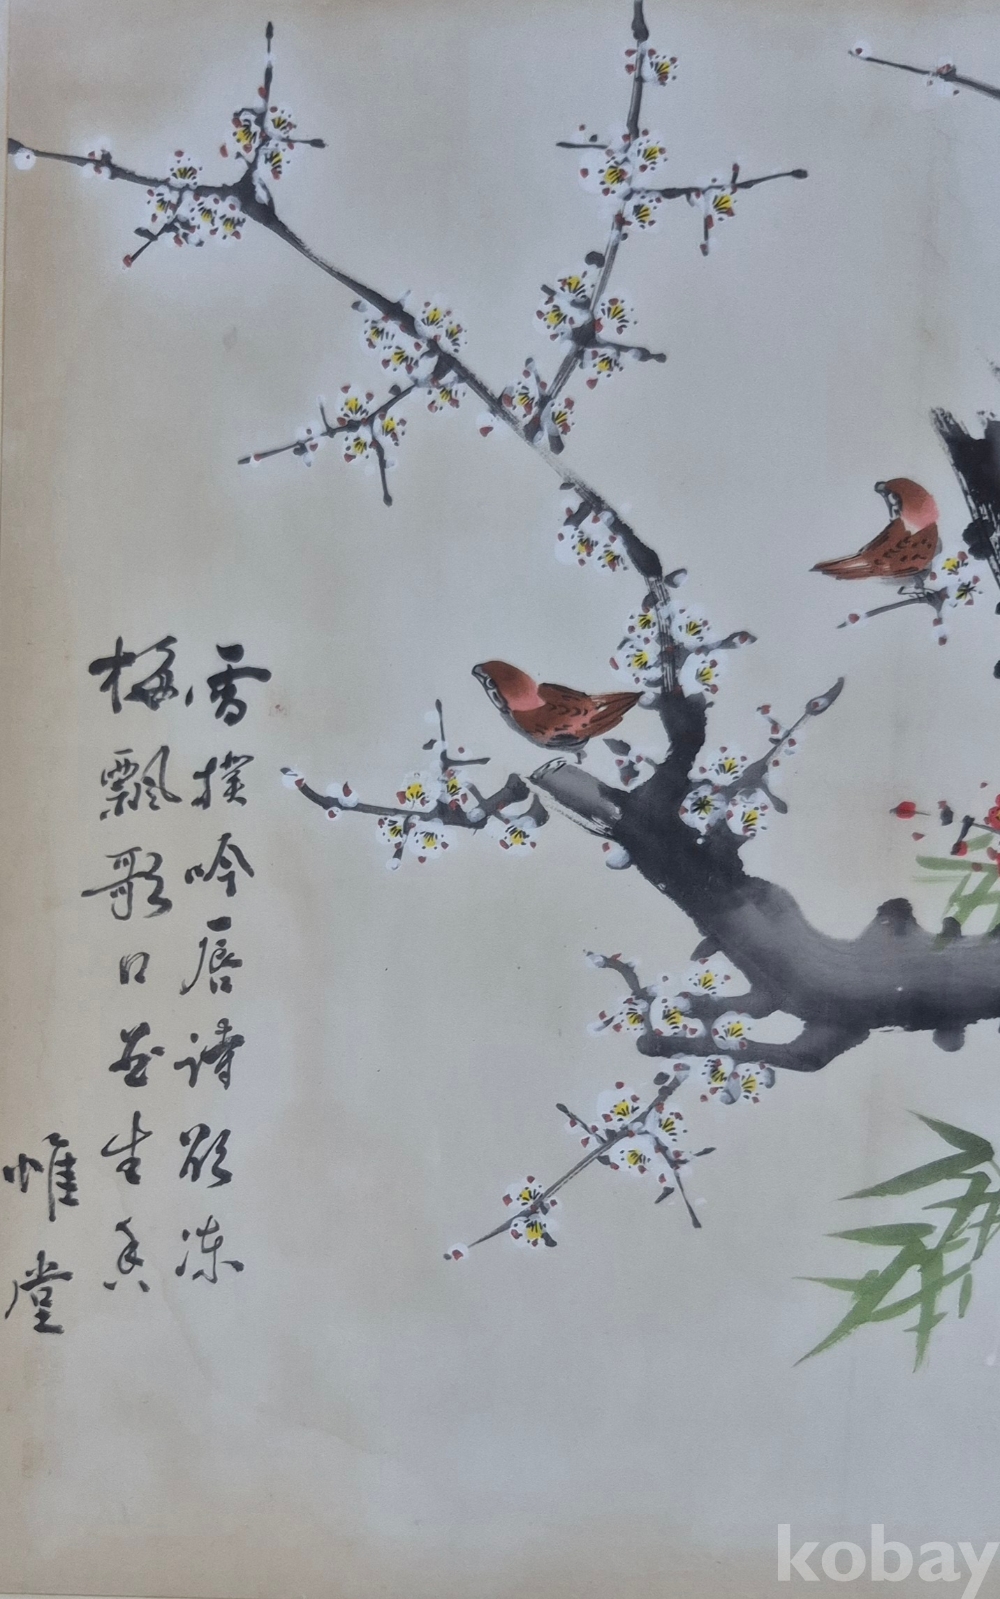 雪撲吟唇詩欲凍
梅飄歌口並生香
惟堂
kobay